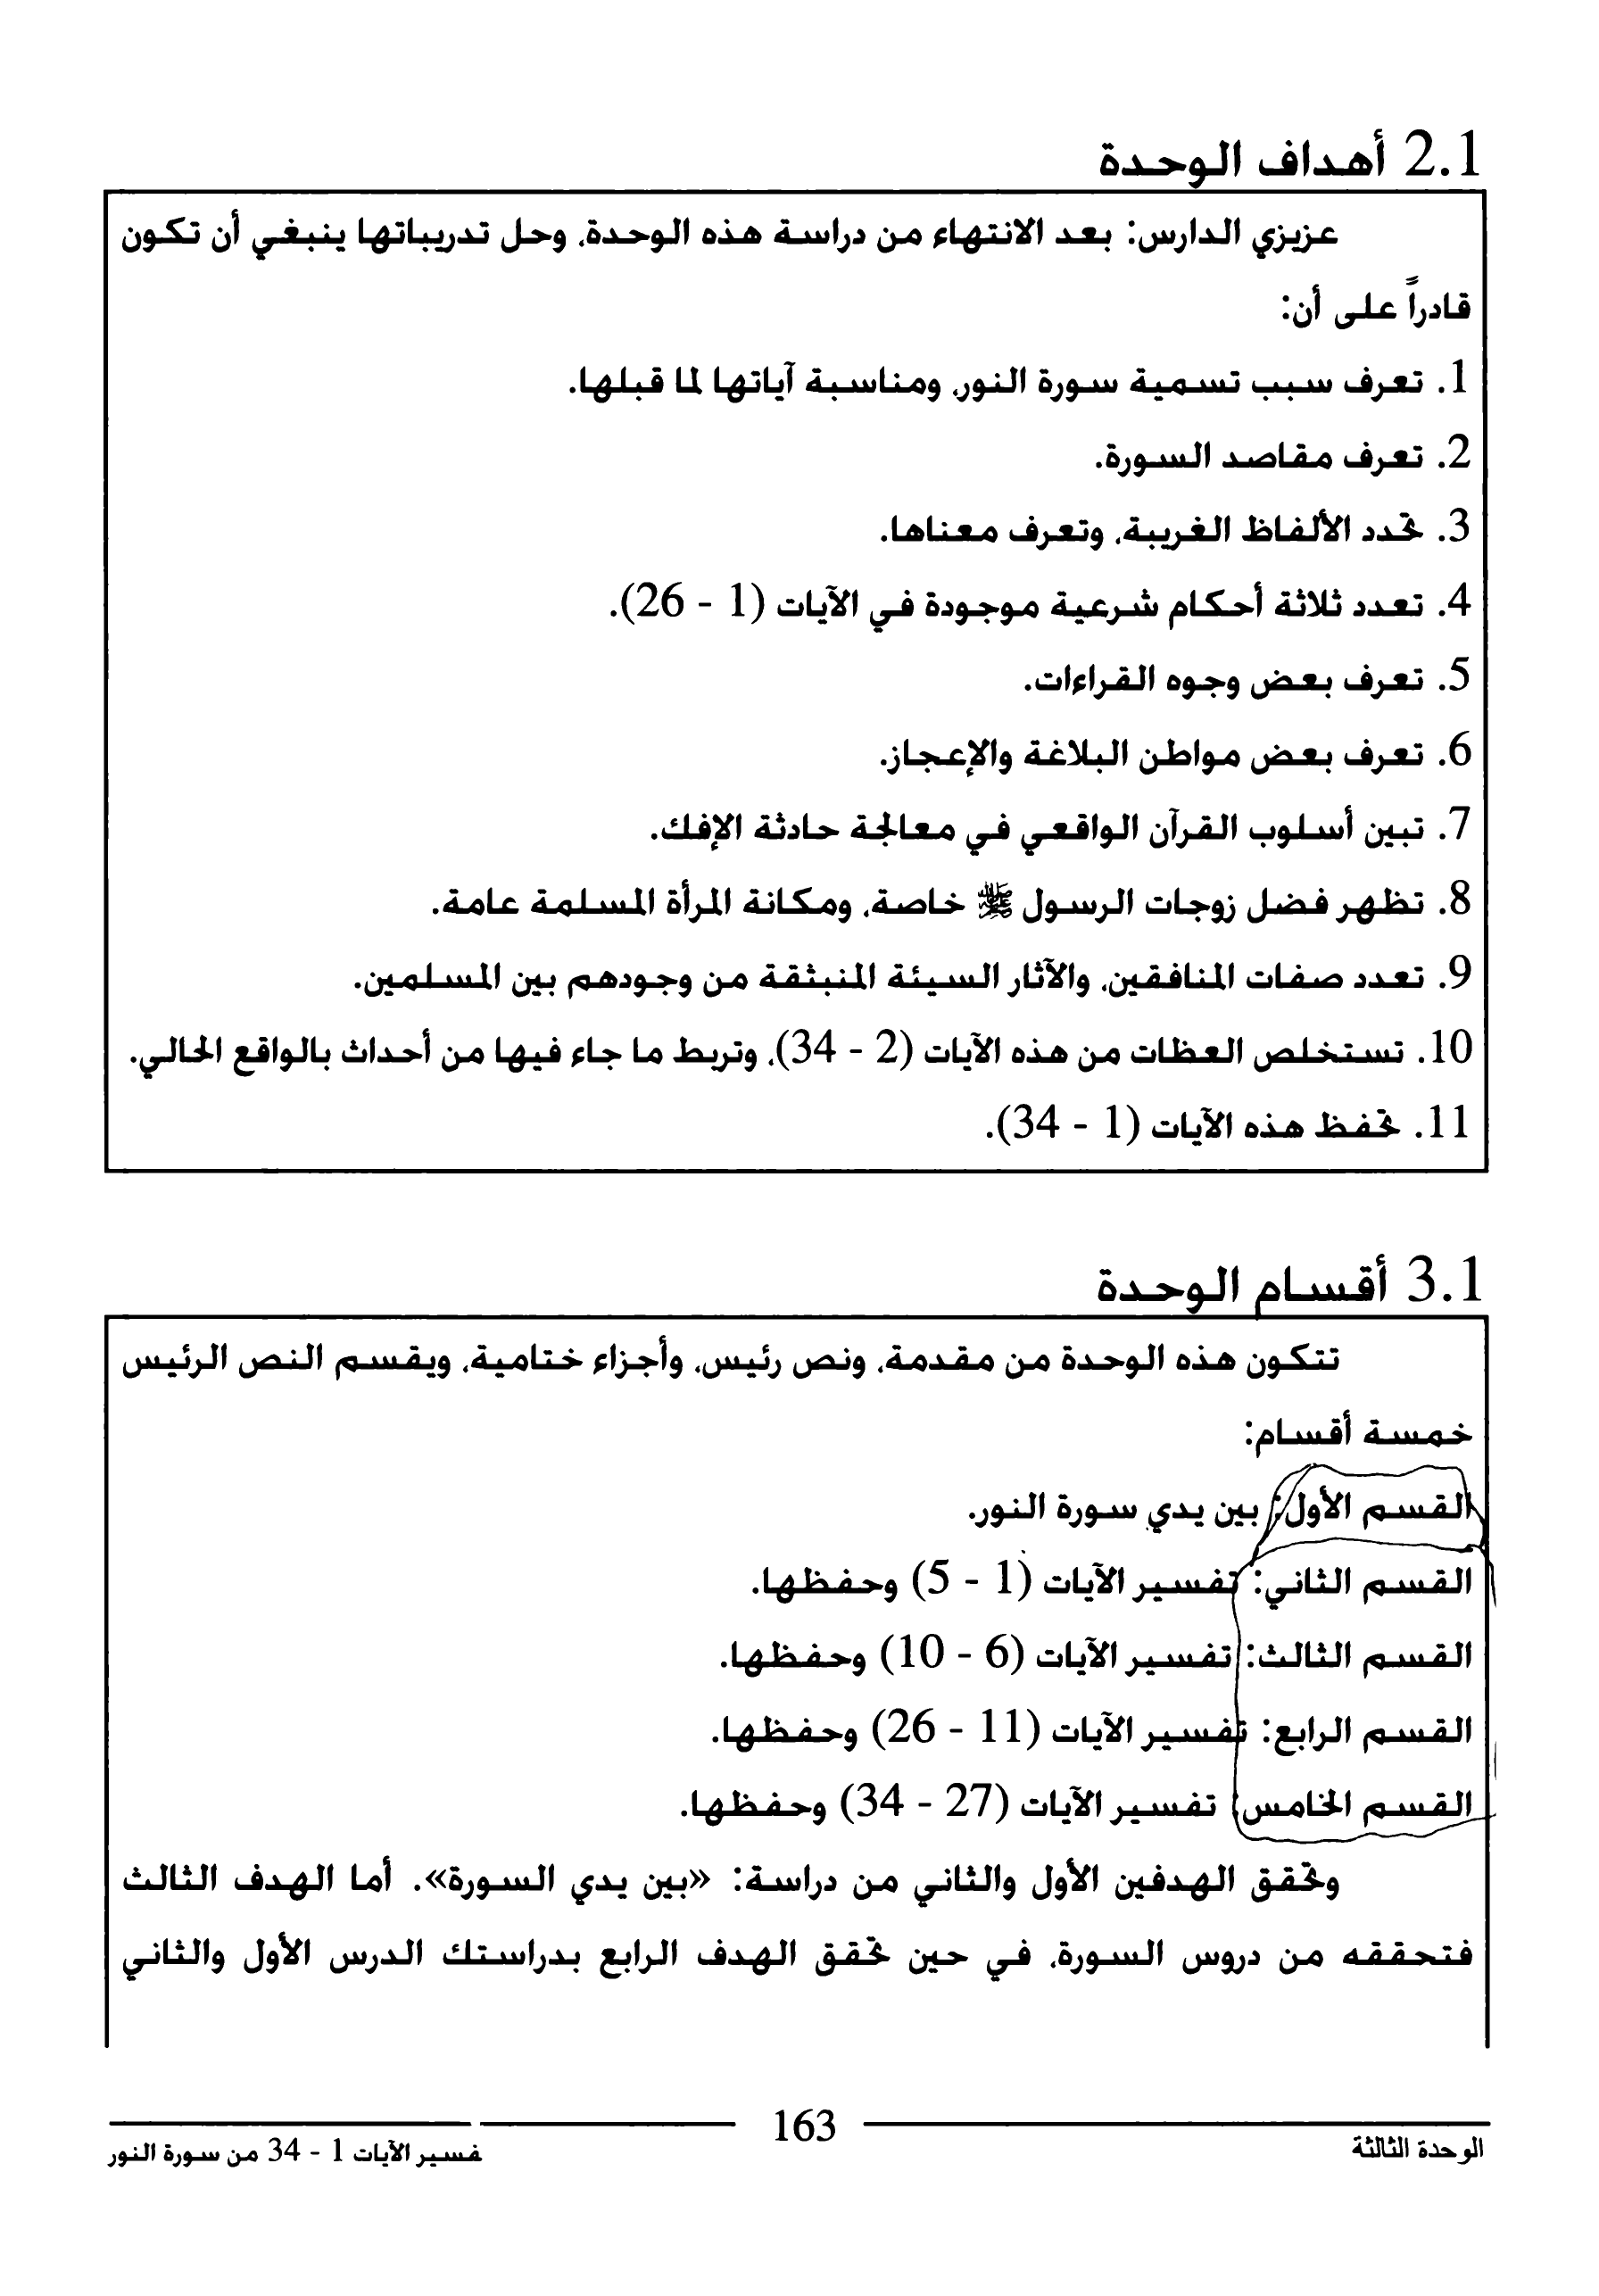 2.1 أهداف الوحدة
عزيزي الدارس: بعد الانتهاء من دراسة هذه الوحدة، وحل تدريباتها ينبغي أن تكون
قادراً على أن:
1. تعرف سبب تسمية سورة النور، ومناسبة آياتها لما قبلها.
2. تعرف مقاصد السورة.
3. تحدد الألفاظ الغريبة، وتعرف معناها.
4. تعدد ثلاثة أحكام شرعية موجودة في الآيات (1 - 26).
5. تعرف بعض وجوه القراءات.
6. تعرف بعض مواطن البلاغة والإعجاز.
7. تبين أسلوب القرآن الواقعي في معالجة حادثة الإفك.
8. تظهر فضل زوجات الرسول ﷺ خاصة، ومكانة المرأة المسلمة عامة.
9. تعدد صفات المنافقين، والآثار السيئة المنبثقة من وجودهم بين المسلمين.
10. تستخلص العظات من هذه الآيات (2 - 34)، وتربط ما جاء فيها من أحداث بالواقع الحالي.
11. تحفظ هذه الآيات (1 - 34).
3.1 أقسام الوحدة
تتكون هذه الوحدة من مقدمة، ونص رئيس، وأجزاء ختامية، ويقسم النص الرئيس
خمسة أقسام:
القسم الأول: بين يدي سورة النور.
القسم الثاني: تفسير الآيات (1 - 5) وحفظها.
القسم الثالث: تفسير الآيات (6 - 10) وحفظها.
القسم الرابع: تفسير الآيات (11 - 26) وحفظها.
القسم الخامس: تفسير الآيات (27 - 34) وحفظها.
وتحقق الهدفين الأول والثاني من دراسة: «بين يدي السورة». أما الهدف الثالث
فتحققه من دروس السورة، في حين تحقق الهدف الرابع بدراستك الدرس الأول والثاني
163
الوحدة الثالثة
فسير الآيات 1 - 34 من سورة النور